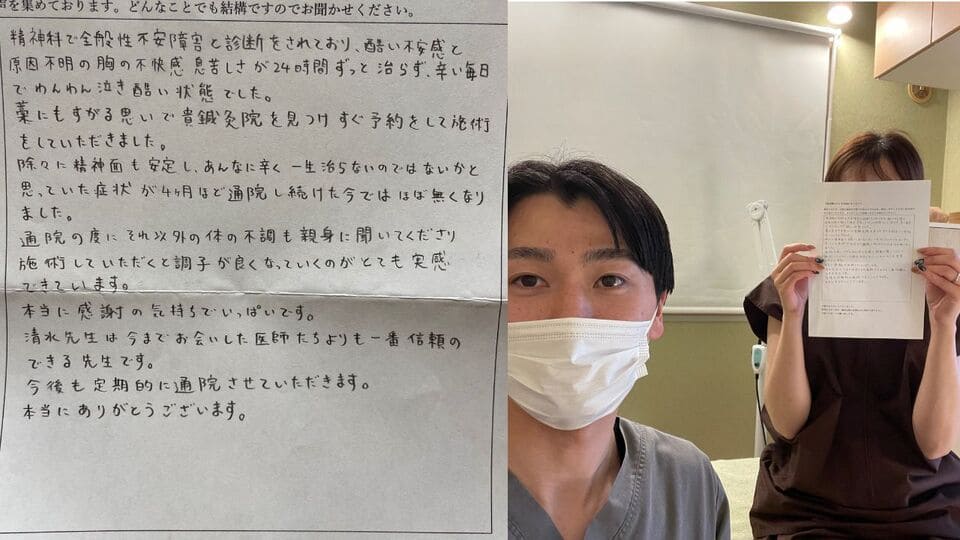 を集めております。どんなことでも結構ですのでお聞かせください。
精神科で全般性不安障害と診断をされており、酷い不安感と
原因不明の胸の不快感 息苦しさが24時間ずっと治らず、辛い毎日
でわんわん泣き酷い状態でした。
藁にもすがる思いで貴鍼灸院を見つけすぐ予約をして施術
をしていただきました。
除々に精神面も安定し、あんなに辛く一生治らないのではないかと
思っていた症状が4ヶ月ほど通院し続けた今では ほぼ無くなり
ました。
通院の度にそれ以外の体の不調も親身に聞いてくださり
施術していただくと調子が良くなっていくのがとても実感
できています。
本当に感謝の気持ちでいっぱいです。
清水先生は今までお会いした医師たちよりも一番信頼の
できる先生です。
今後も定期的に通院させていただきます。
本当にありがとうございます。